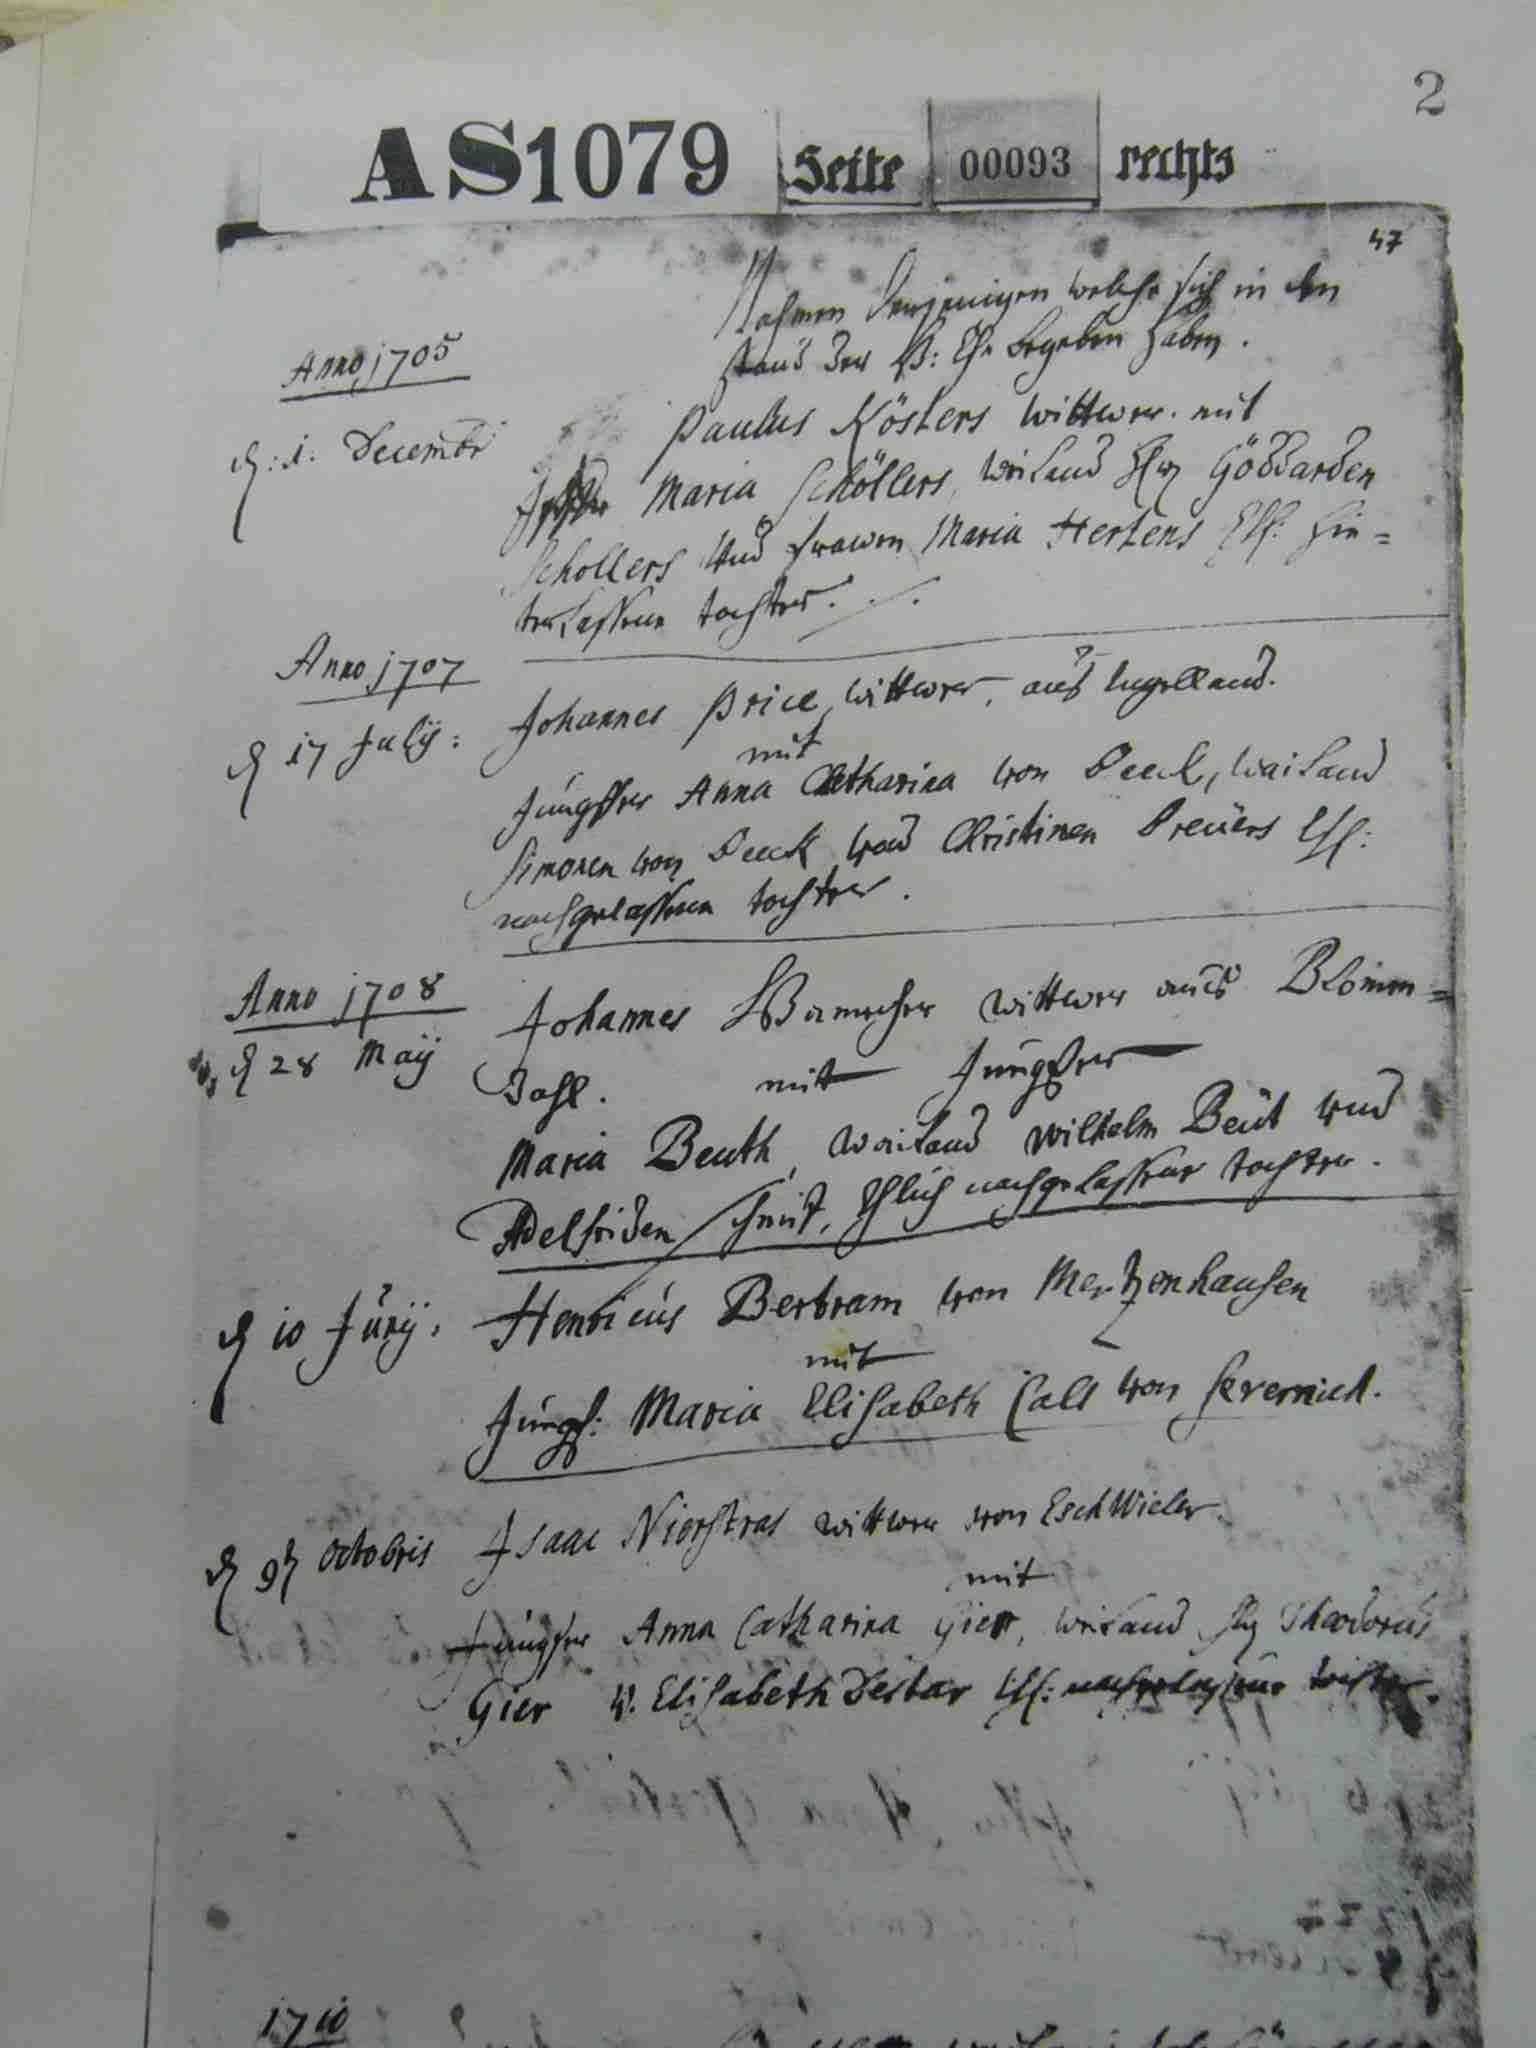 2
AS1079 Seite 00093 rechts
47
Nahmen derjenigen welche sich in den
Anno 1705
standt der H: Ehe begeben haben.
d. 1. Decembr
Paulus Kösters wittwer. mit
Maria Schöllers, weiland Hrn Göddarden
Schollers und frawen Maria Hertens Ehl: hin=
terlassene tochter.
Anno 1707
d 17 Julij:
Johannes Price, wittwer, auß Engelland.
mit
Jungffer Anna Catharina von Beeck, wailand
Simonen von Beeck und Christinen Breüers Ehl:
nachgelassene tochter.
Anno 1708
d 28 Maij
Johannes wittwer auß Blömen=
dahl. mit Jungffer
Maria Beuth, wailand Wilhelm Beüt und
Adelheiden Schmit, Ehlich nachgelassene tochter.
d 10 Junij.
Henricus Bertram von Mentzenhausen
mit
Jungf: Maria Elisabeth Call von Severnich.
d 9 Octobris
Isaac Nierstras wittwer von Eschwieler.
mit
Jungfer Anna Catharina Gier, weiland Hrn Theodorus
Gier u. Elisabeth Ehl: nachgelassene tochter.
1710